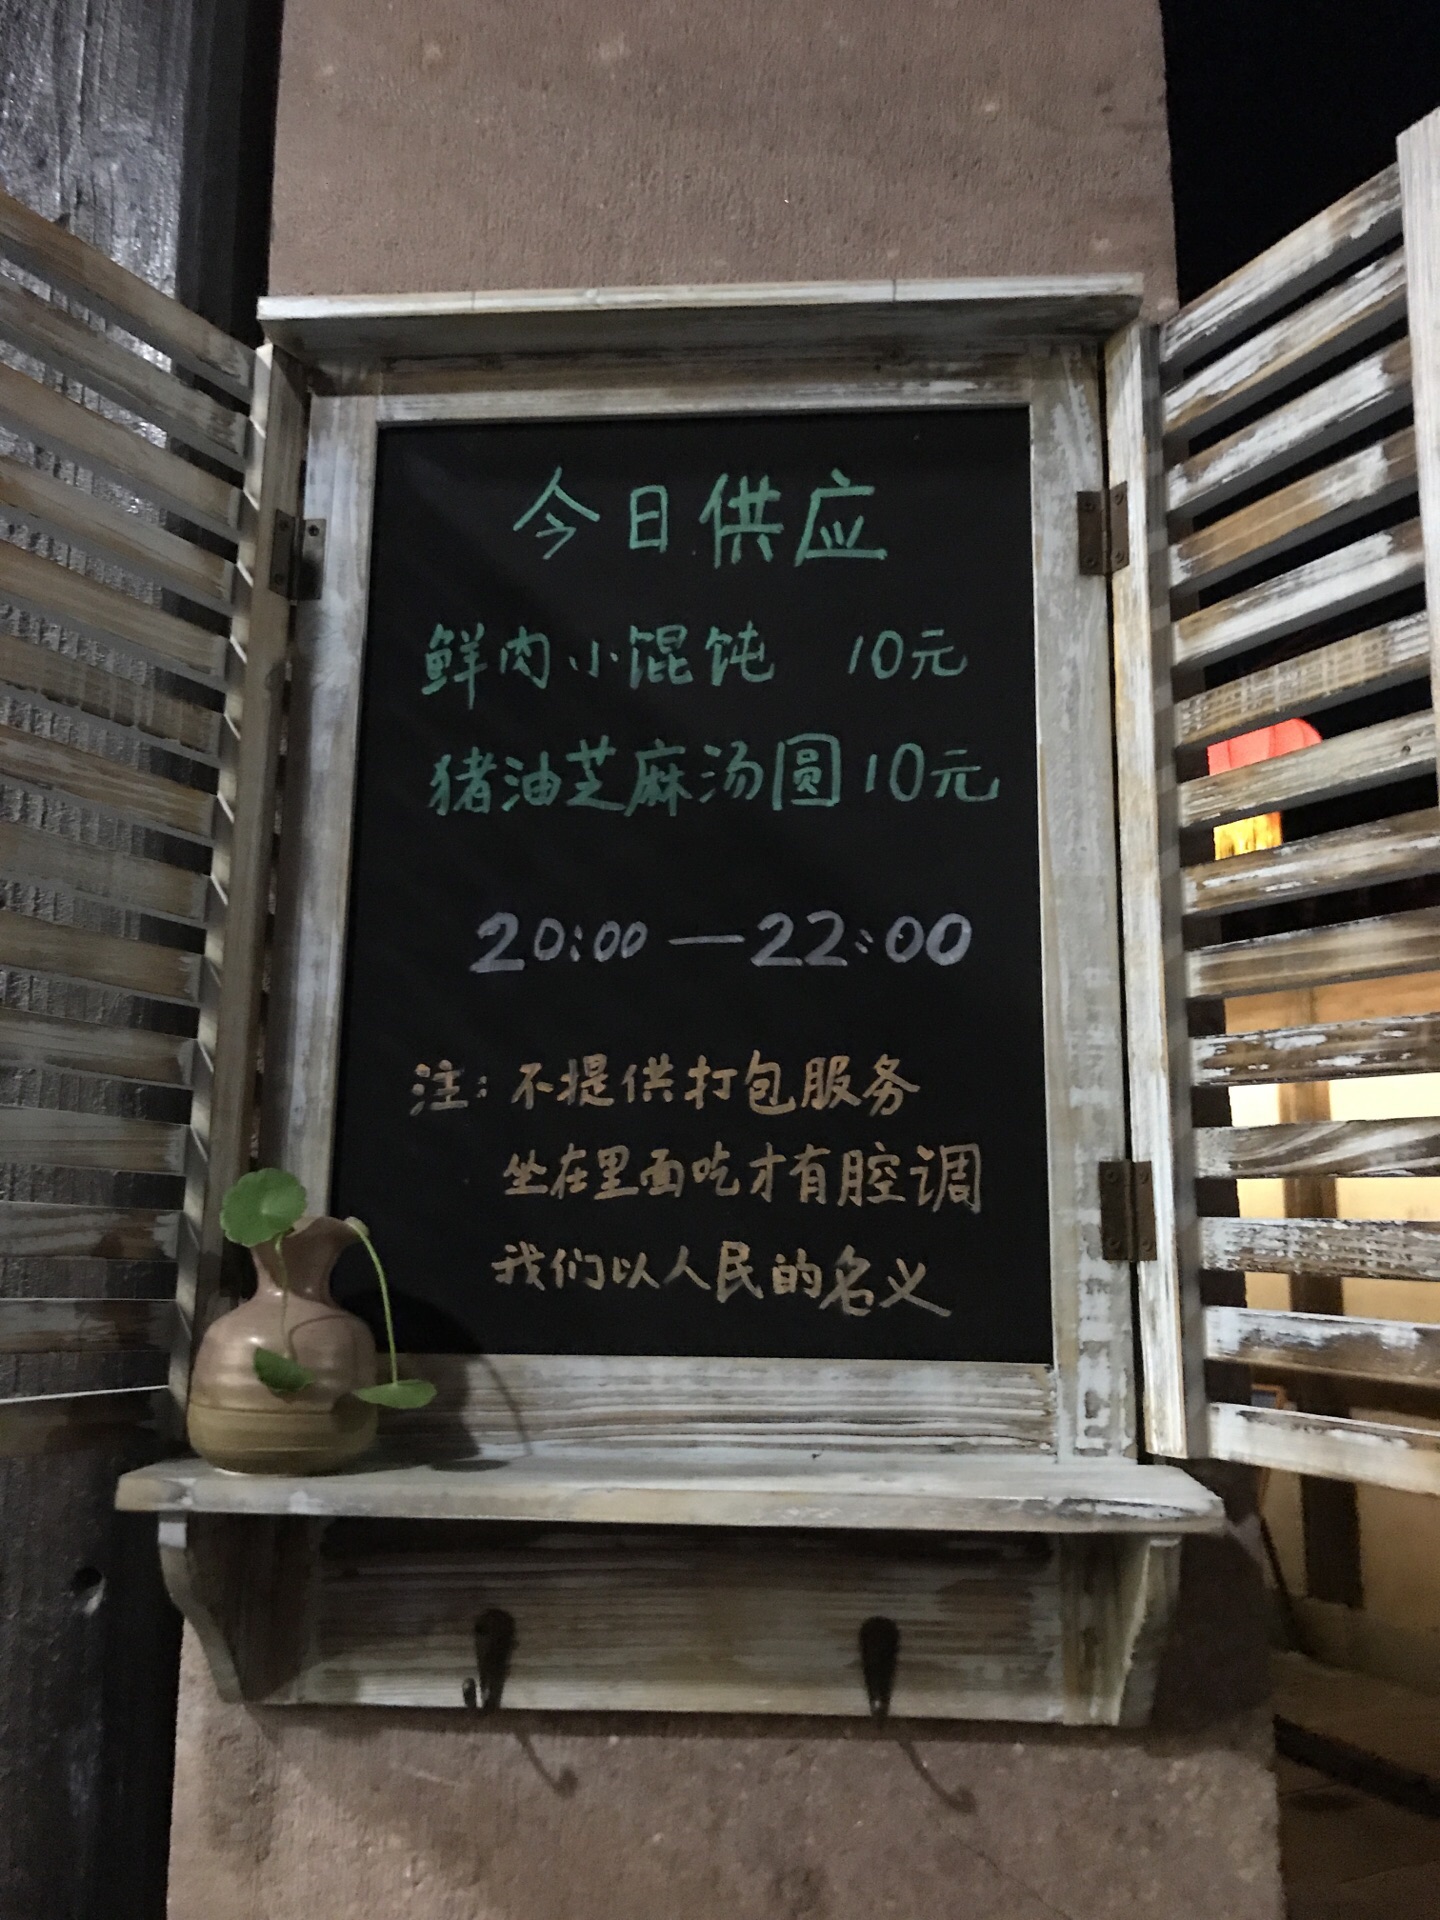 今日供应
鲜肉小馄饨 10元
猪油芝麻汤圆 10元
20:00—22:00
注:不提供打包服务
坐在里面吃才有腔调
我们以人民的名义